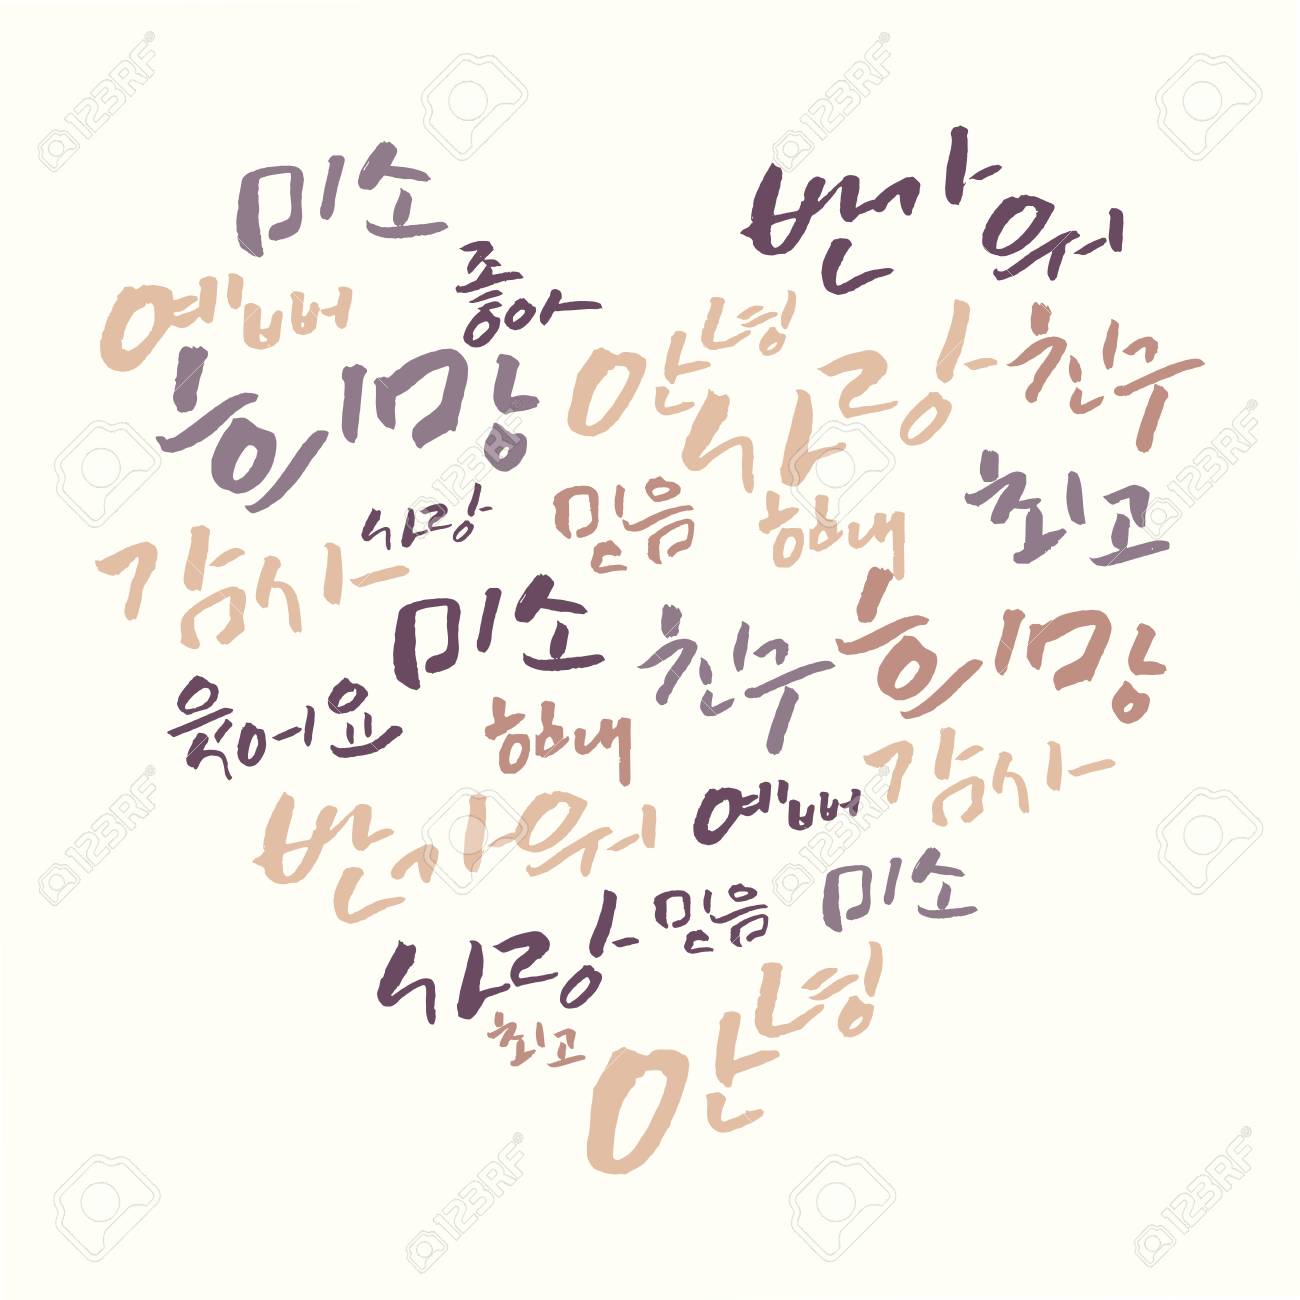 미소
반가워
좋아
예뻐
안녕
희망
사랑
친구
최고
사랑
믿음
함께
감사
미소
친구
희망
웃어요
함께
감사
반가워
예뻐
사랑
믿음
미소
최고
안녕
123RF